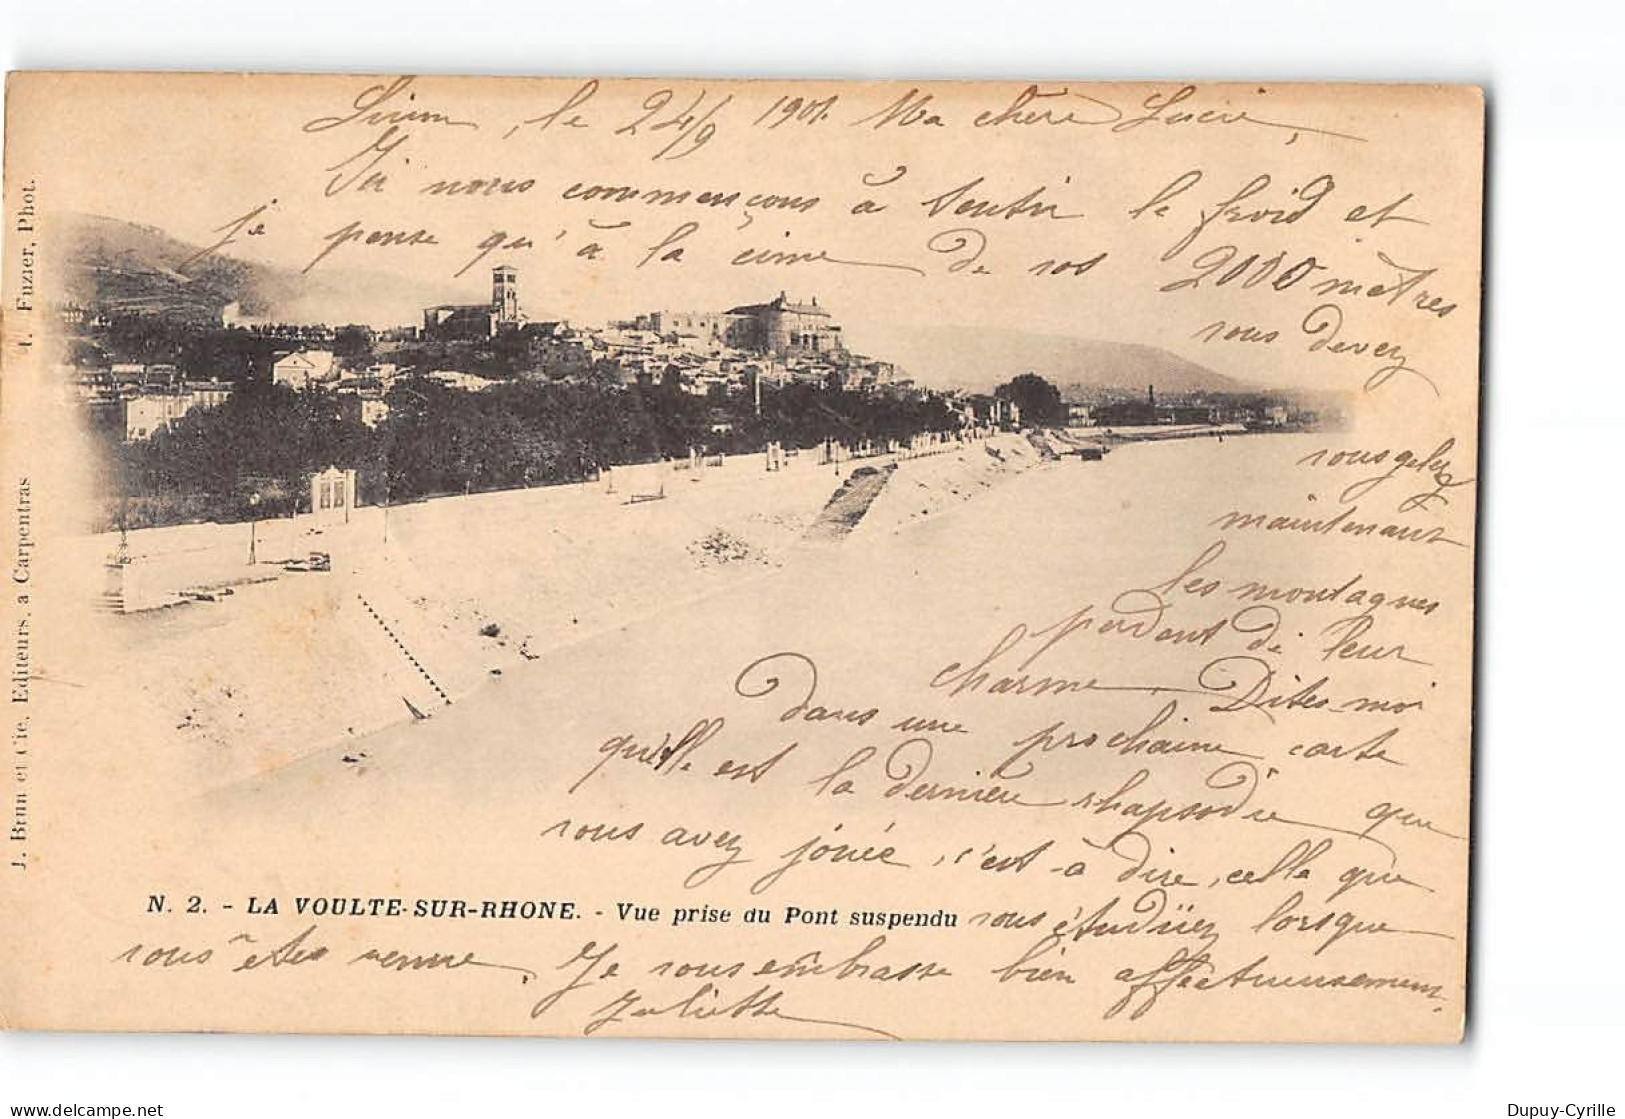 le 24/9 1901. Ma chère Lucie,
Ici nous commençons à sentir le froid et
je pense qu'à la cime de vos 2000 mètres
vous devez
vous gelez
maintenant
les montagnes
perdent de leur
charme. Dites-moi
dans une prochaine carte
qu'elle est la dernière rhapsodie que
vous avez jouée, c'est-à dire, celle que
vous étudiiez lorsque
vous êtes venue. Je vous embrasse bien affectueusement.
Juliette
N. 2. - LA VOULTE-SUR-RHONE. - Vue prise du Pont suspendu
J. Brun et Cie, Editeurs, a Carpentras
Fuzier, Phot.
Dupuy-Cyrille
delcampe.net